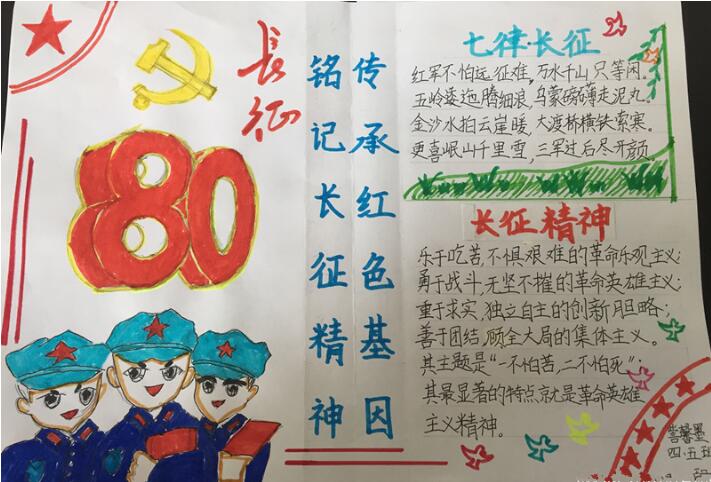 長征
80
传承红色基因
铭记长征精神
七律·长征
红军不怕远征难,万水千山只等闲。
五岭逶迤腾细浪,乌蒙磅礴走泥丸。
金沙水拍云崖暖,大渡桥横铁索寒。
更喜岷山千里雪,三军过后尽开颜。
长征精神
乐于吃苦,不惧艰难的革命乐观主义;
勇于战斗,无坚不摧的革命英雄主义;
重于求实,独立自主的创新胆略;
善于团结,顾全大局的集体主义。
其主题是“一不怕苦,二不怕死”;
其最显著的特点就是革命英雄
主义精神。
四.五班